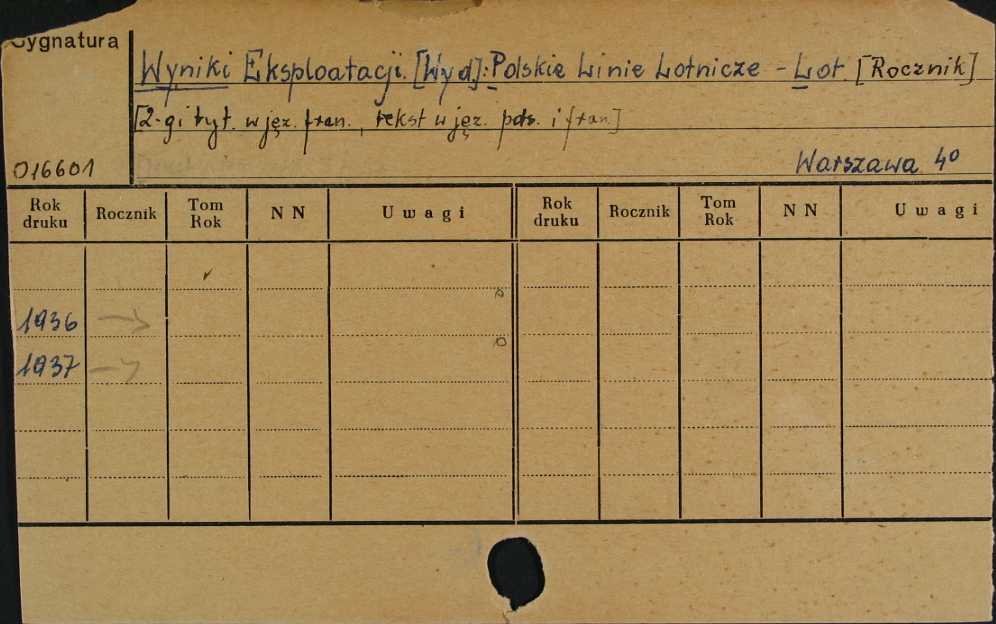 Sygnatura
Wyniki Eksploatacji. [Wyd.]: Polskie Linie Lotnicze - Lot. [Rocznik]
[2-gi tyt. w jęz. fran., tekst w jęz. pols. i fran.]
016601
Warszawa 4°
Rok druku Rocznik Tom Rok NN Uwagi Rok druku Rocznik Tom Rok NN Uwagi
1936
1937